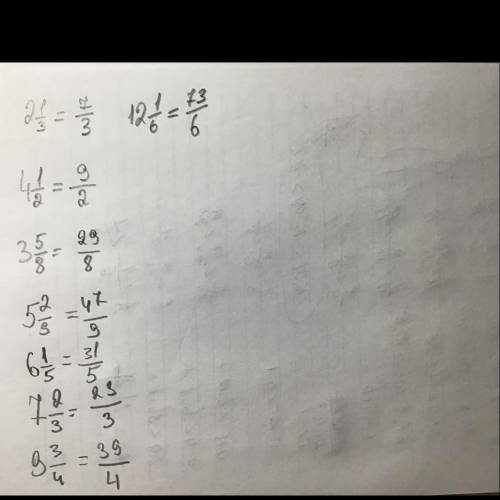 2 1/3 = 7/3   12 1/6 = 73/6
4 1/2 = 9/2
3 5/8 = 29/8
5 2/9 = 47/9
6 1/5 = 31/5
7 2/3 = 23/3
9 3/4 = 39/4